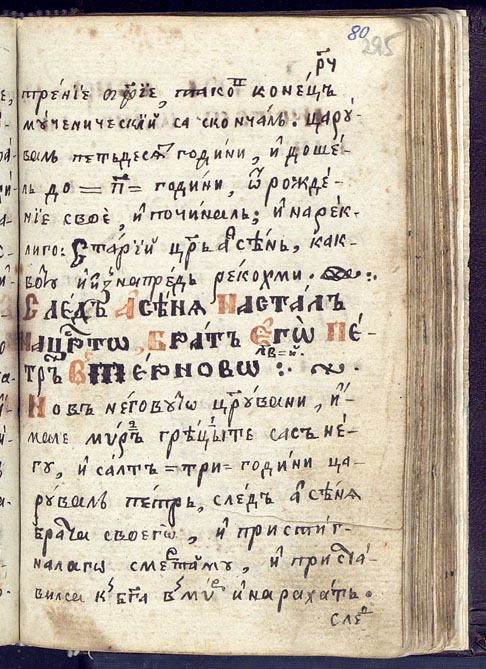 80
295
р҃ч
трѐнїе ѻ҆ф҃їе, тако конецъ
мꙋ́ченическїй са скончалъ. царꙋ̀-
валъ петьдесѧ̑ годи́ни, и҆ доше́-
лъ до = п҃ = години, ѿ рожде́-
нїе своѐ, и҆ почи́налъ; и҆ нарек-
лиго: Ста́рїй цр҃ь а҆сѣ́нь, как-
напре́дь реко́хми.
Слѐдъ А҆сѣ́нѧ Наста́лъ
Нацр҃тѡ, Бра́тъ Егѡ̀ Пе́-
тръ В Терновѡ :.
Новъ неговꙋто цр҃ꙋвани, и҆-
мале ми́ръ гре́цыте сасъ не́-
гꙋ, и҆ са́лтъ = три = годи́ни ца-
рꙋвалъ пе́тръ, сле́дъ а҆сѣ́нѧ
бра́та своегѡ̀, и҆ пристиг-
налагѡ сме́ртъ та́мꙋ, и҆ приста́-
вилса къ бг҃а въ миръ и҆ нарахать.
сле